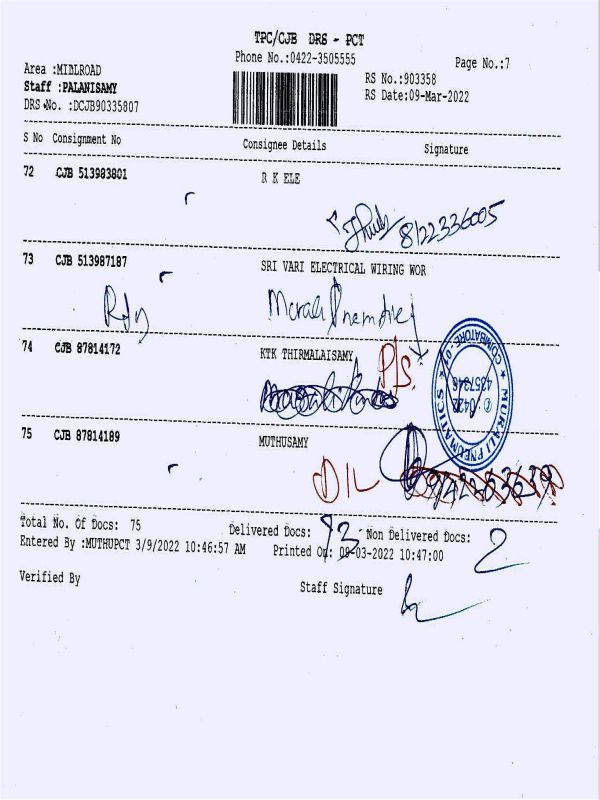 TPC/CJB DRS - PCT
Phone No.:0422-3505555
Page No.:7
Area :MIDLROAD
RS No.:903358
Staff :PALANISAMY
RS Date:09-Mar-2022
DRS No. :DCJB90335807
S No Consignment No Consignee Details Signature
72 CJB 513983801 R K ELE
8122336005
73 CJB 513987187 SRI VARI ELECTRICAL WIRING WOR
74 CJB 87814172 KTK THIRMALAISAMY
P/S.
MURALI PNEUMATICS
COIMBATORE
0422
4357346
75 CJB 87814189 MUTHUSAMY
D/L
Total No. Of Docs: 75 Delivered Docs: 73 Non Delivered Docs: 2
Entered By :MUTHUPCT 3/9/2022 10:46:57 AM Printed On: 09-03-2022 10:47:00
Verified By
Staff Signature